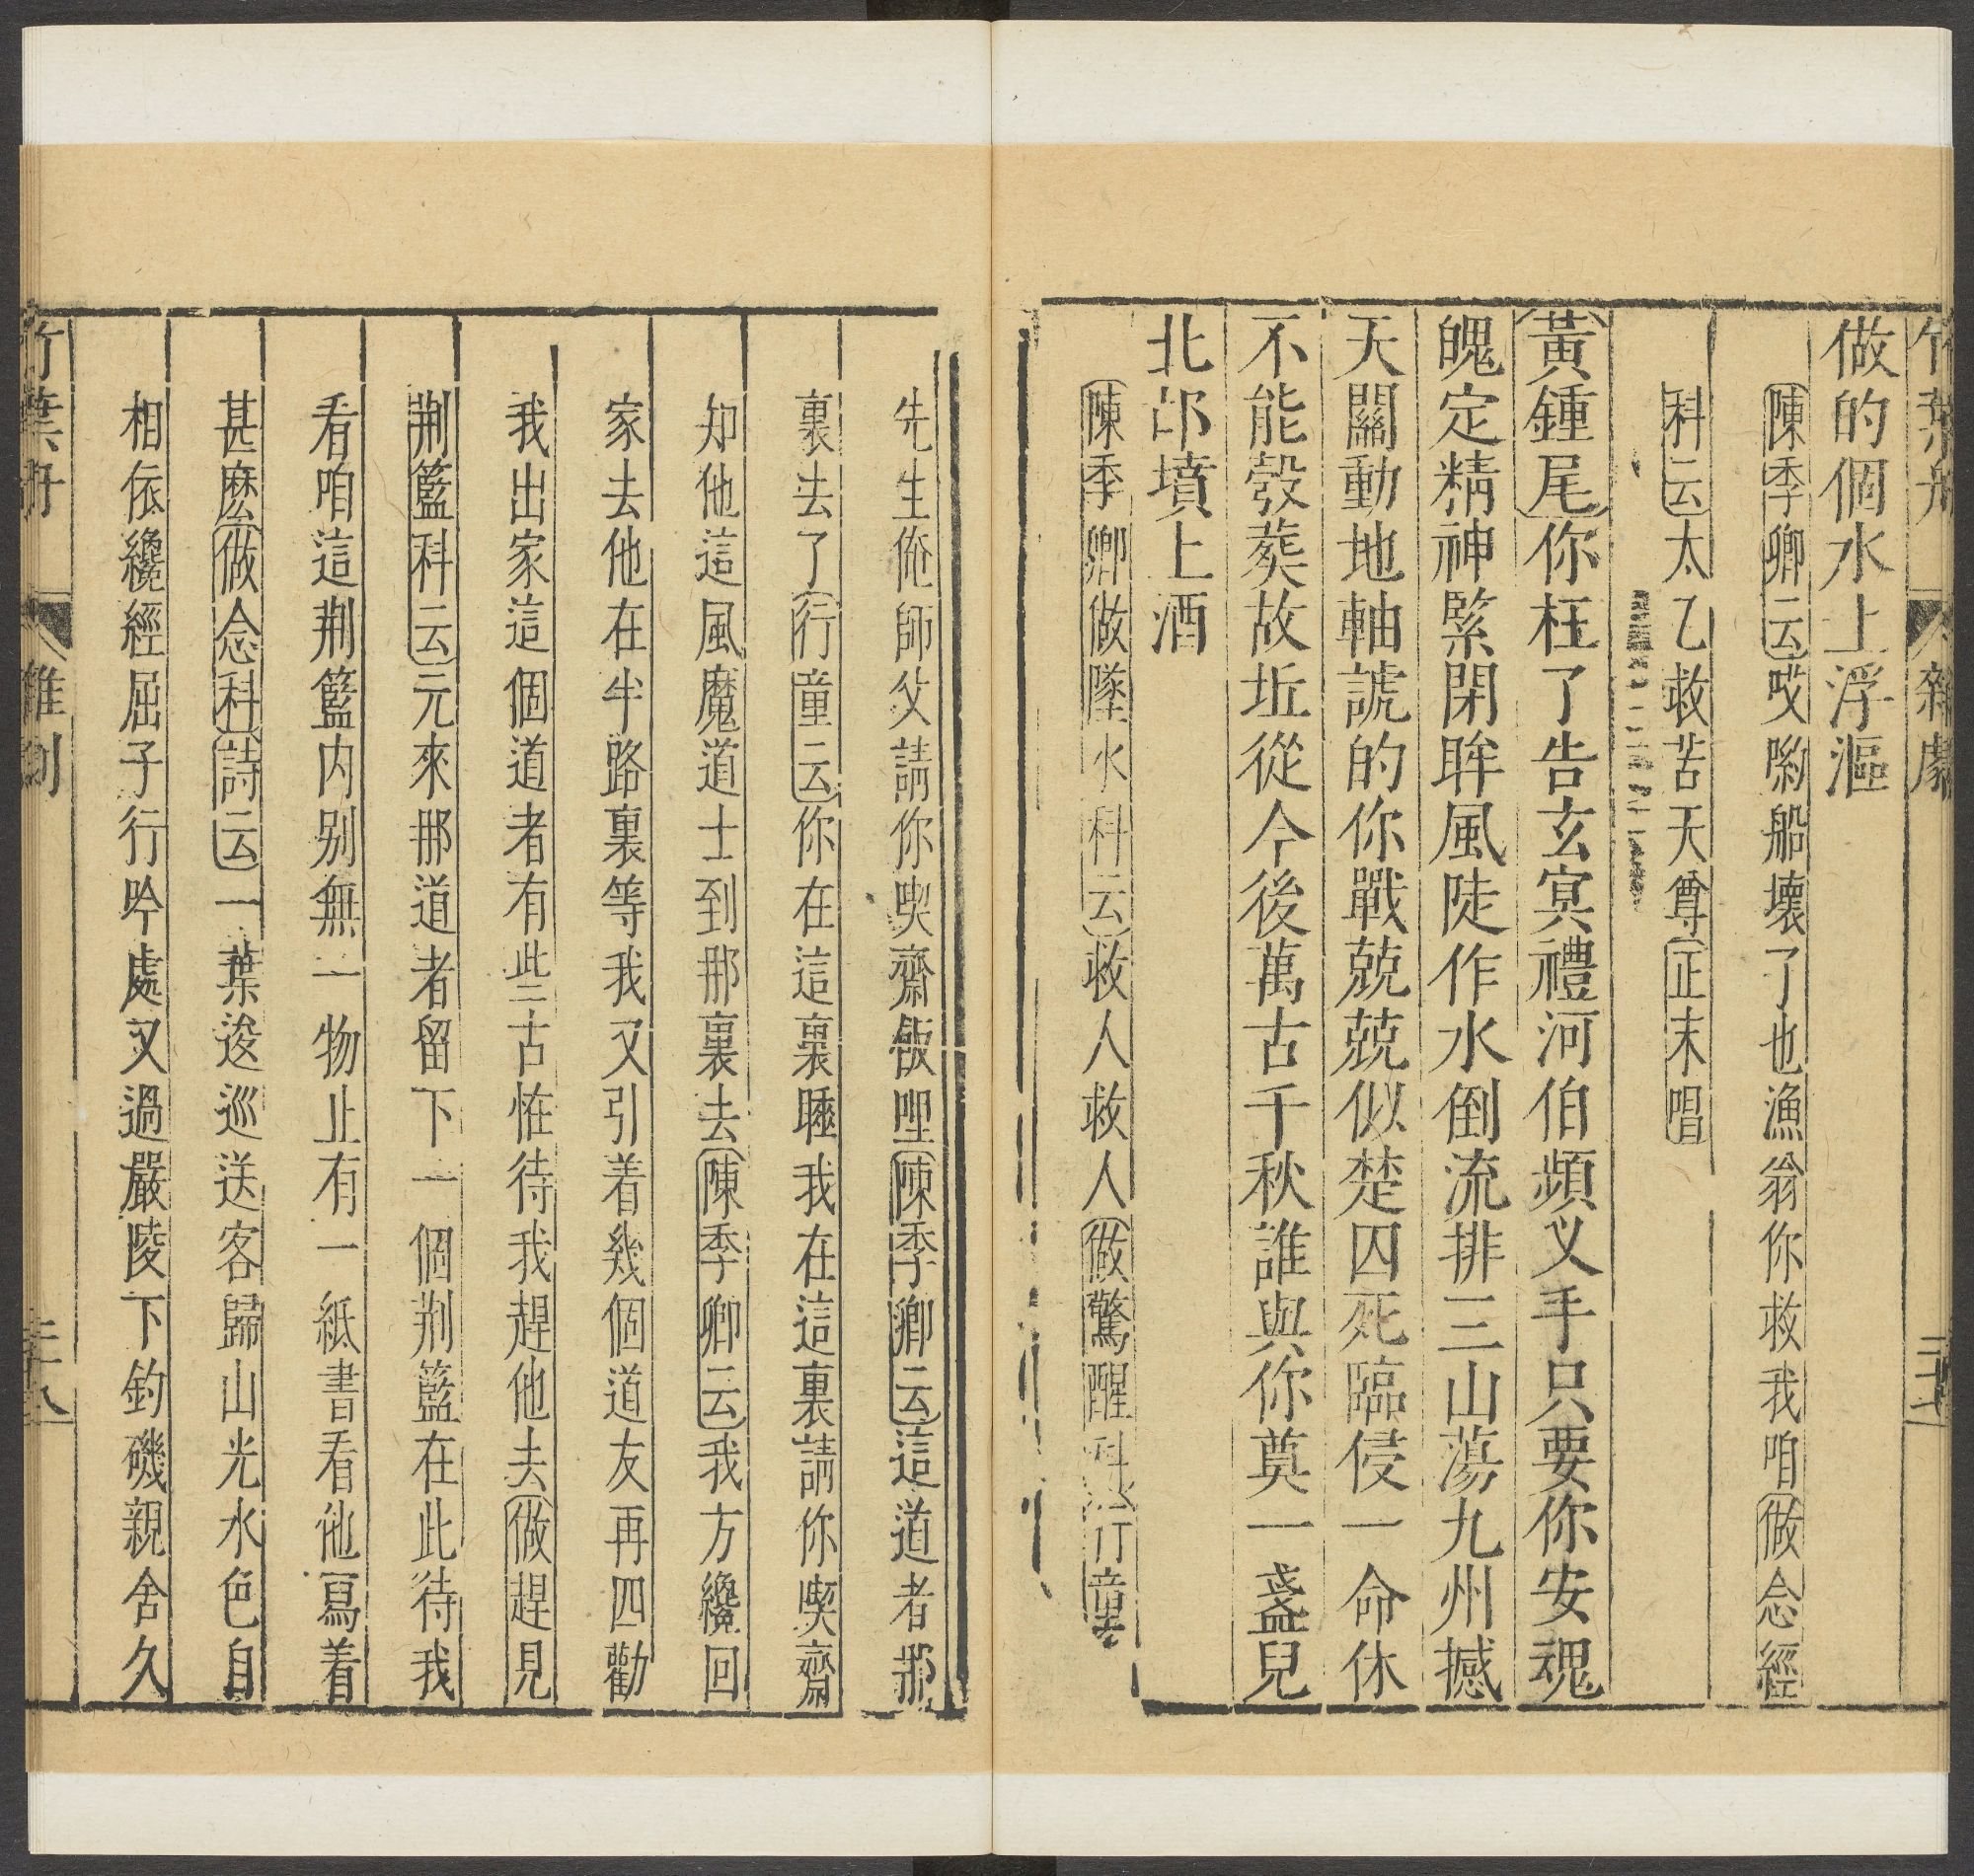 竹葉舟 雜劇
做的個水上浮漚
陳季卿云哎喲船壞了也漁翁你救我咱做念經
科云太乙救苦天尊正末唱
黃鍾尾你枉了告玄冥禮河伯頻叉手只要你安魂
魄定精神緊閉眸風陡作水倒流排三山蕩九州撼
天關動地軸諕的你戰兢兢似楚囚死臨侵一命休
不能彀葬故坵從今後萬古千秋誰與你奠一盞兒
北邙墳上酒
陳季卿做墜水科云救人救人做驚醒科行童
先生俺師父請你喫齋飯哩陳季卿云這道者那
裏去了行童云你在這裏睡我在這裏請你喫齋
知他這風魔道士到那裏去陳季卿云我方纔回
家去他在半路裏等我又引着幾個道友再四勸
我出家這個道者有些古恠待我趕他去做趕見
荆籃科云元來那道者留下一個荆籃在此待我
看咱這荆籃内别無一物止有一紙書看他寫着
甚麽做念科詩云一葉逡巡送客歸山光水色自
相依纔經屈子行吟處又過嚴陵下釣磯親舍久
竹葉舟 雜劇 二十八